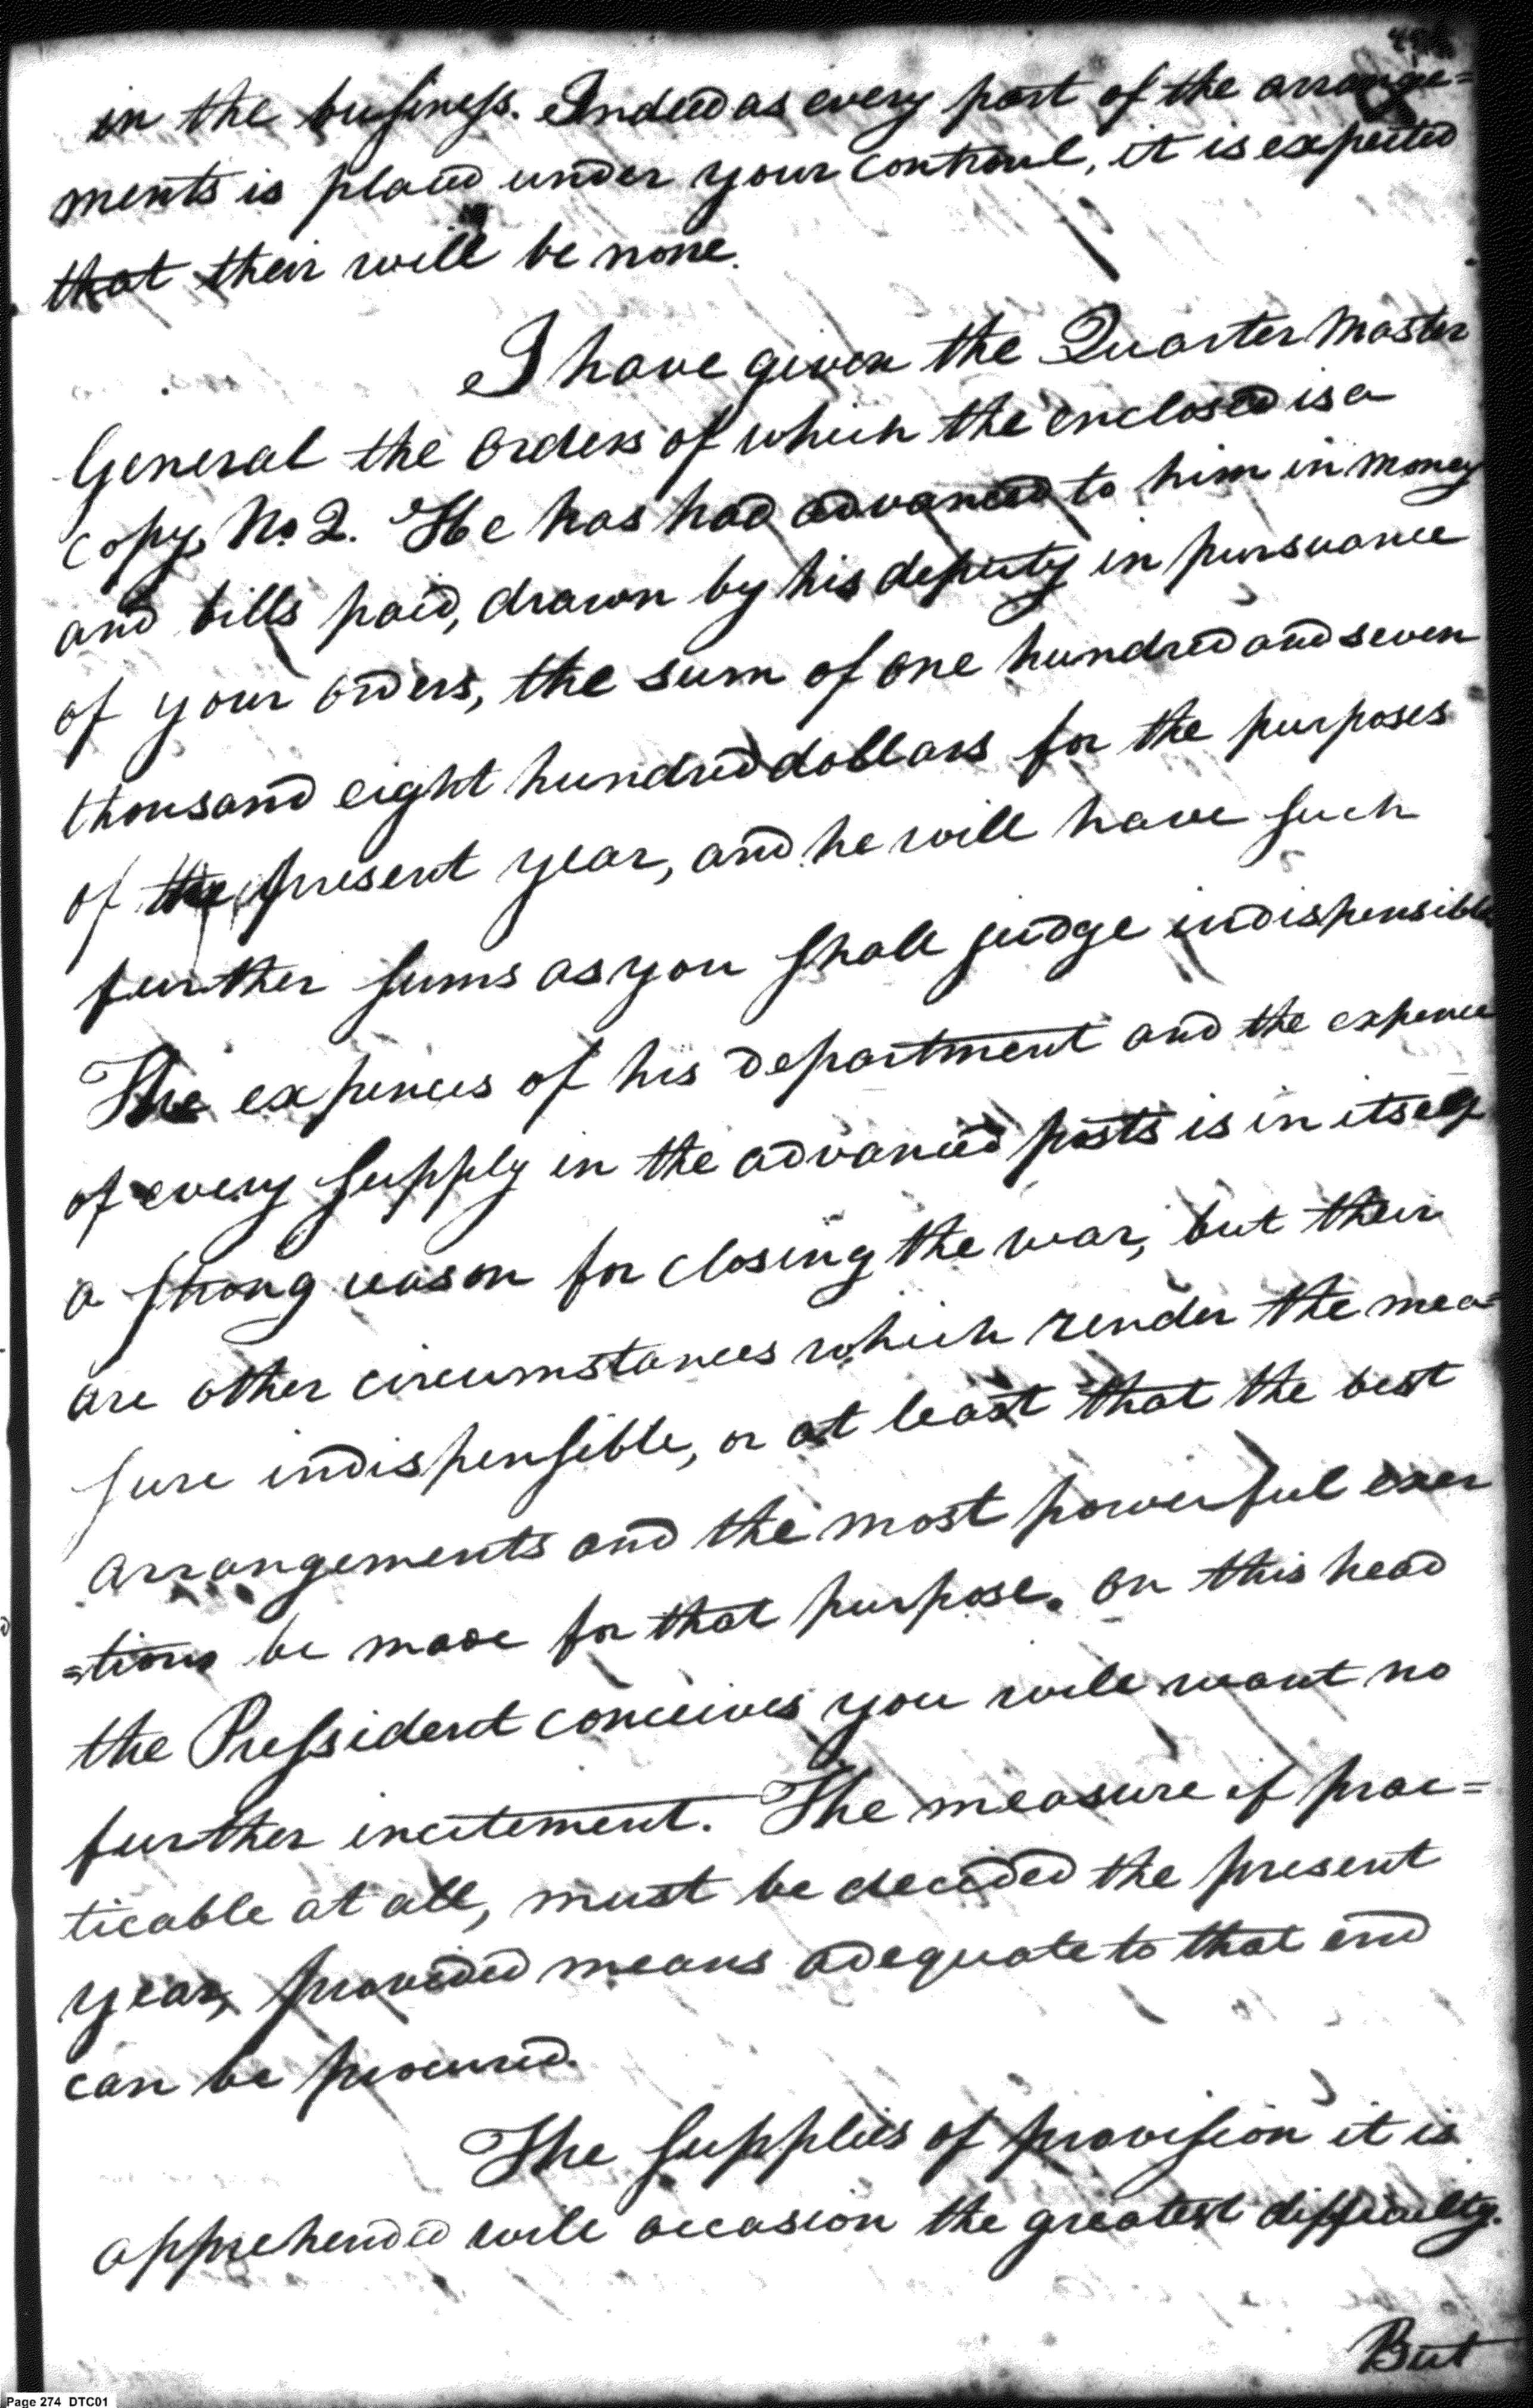 in the business. Indeed as every part of the arrange=
ments is placed under your controul, it is expected
that their will be none.
I have given the Quarter Master
General the orders of which the enclosed is a
copy, No. 2. He has had advanced to him in money
and bills paid, drawn by his deputy in pursuance
of your orders, the sum of one hundred and seven
thousand eight hundred dollars for the purposes
of the present year, and he will have such
further sums as you shall judge indispensible
The expences of his department and the expence
of every supply in the advanced posts is in itself
a strong reason for closing the war, but their
are other circumstances which render the mea=
sure indispensible, or at least that the best
arrangements and the most powerful exer
=tions be made for that purpose. on this head
the Pressident conceives you will want no
further incitement. The measure if prac=
ticable at all, must be decided the present
year, provided means adequate to that end
can be procured.
The supplies of provision it is
apprehended will occasion the greatest difficulty.
But
Page 274 DTC01